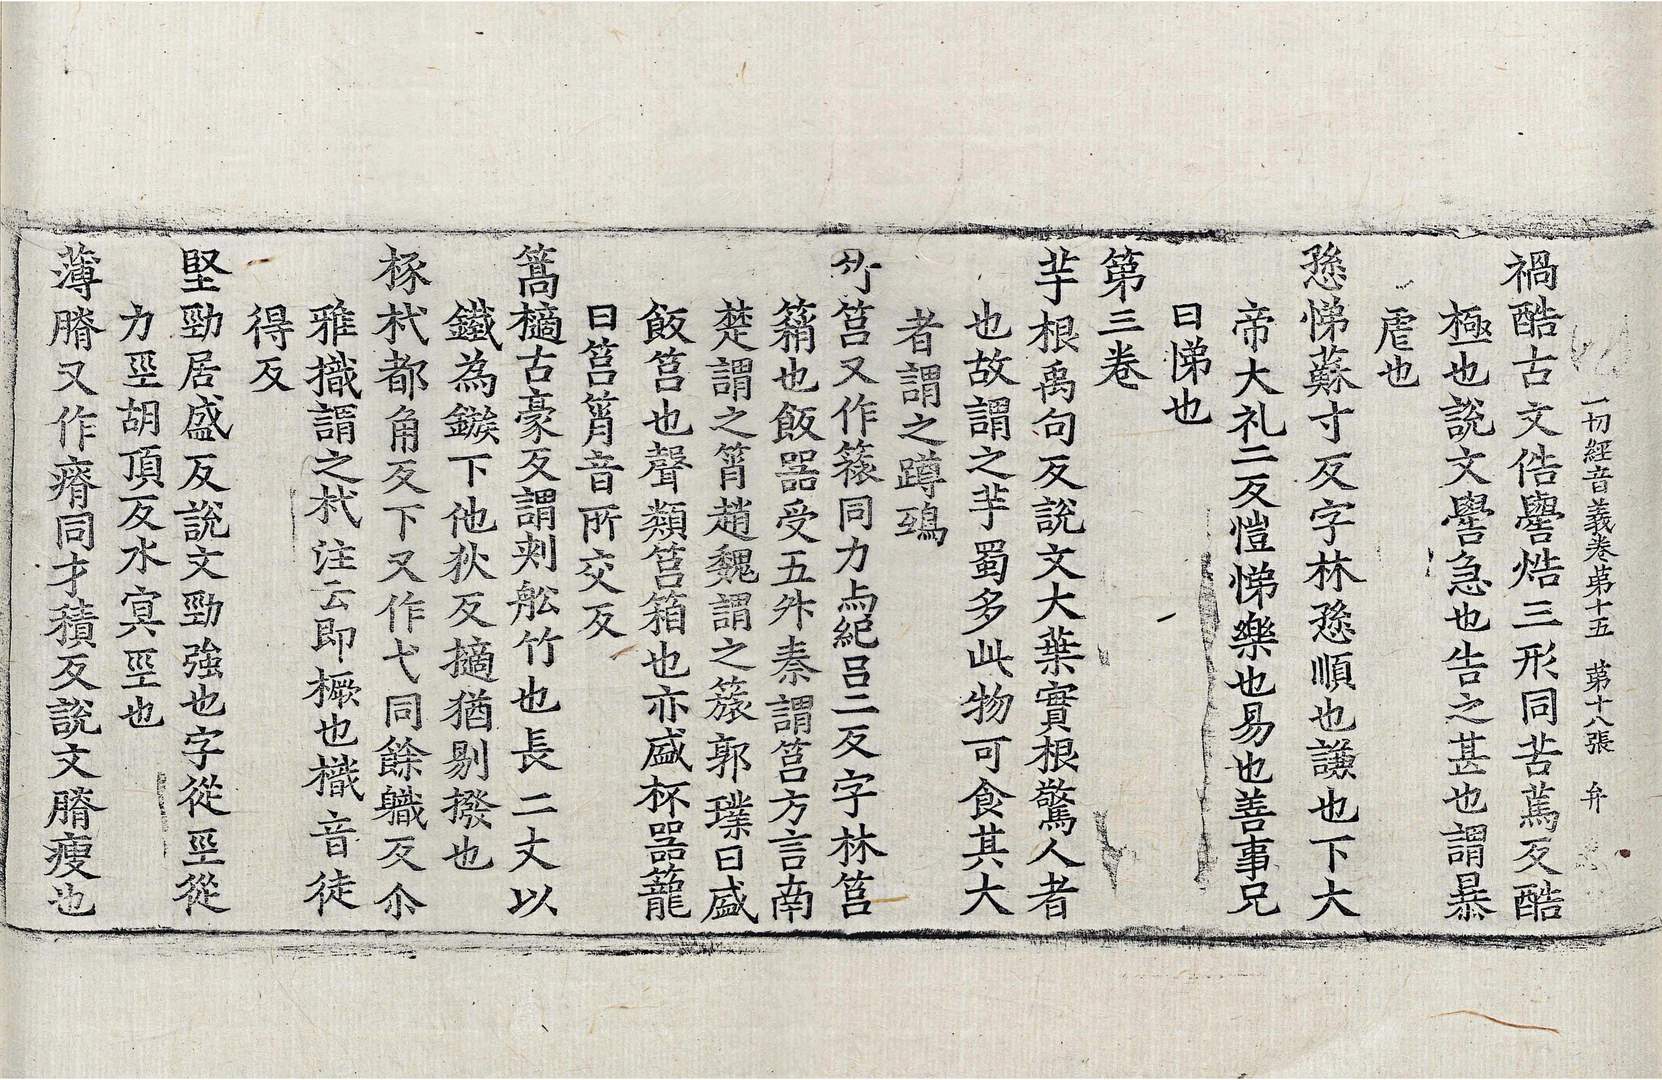 一切經音義卷苐十五 苐十八張 弁
禍酷古文俈嚳焅三形同苦篤反酷
極也說文嚳急也告之甚也謂暴
虐也
愻悌蘇寸反字林愻順也謙也下大
帝大礼二反愷悌樂也易也善事兄
曰悌也
第三卷
芋根禹句反說文大葉實根驚人者
也故謂之芋蜀多此物可食其大
者謂之蹲鴟
竹筥又作簶同力与紀呂二反字林筥
䈰也飯器受五升秦謂筥方言南
楚謂之筲趙魏謂之䉛郭璞曰盛
飯筥也聲類筥箱也亦盛杯器籠
曰筥筲音所交反
篙樀古豪反謂刺舩竹也長二丈以
鐵為鏃下他狄反擿猶剔撥也
椓杙都角反下又作弋同餘職反尒
雅㯰謂之杙注云即橛也㯰音徒
得反
堅勁居盛反說文勁強也字從巠從
力巠胡頂反水㝠巠也
薄膌又作瘠同才積反說文膌瘦也